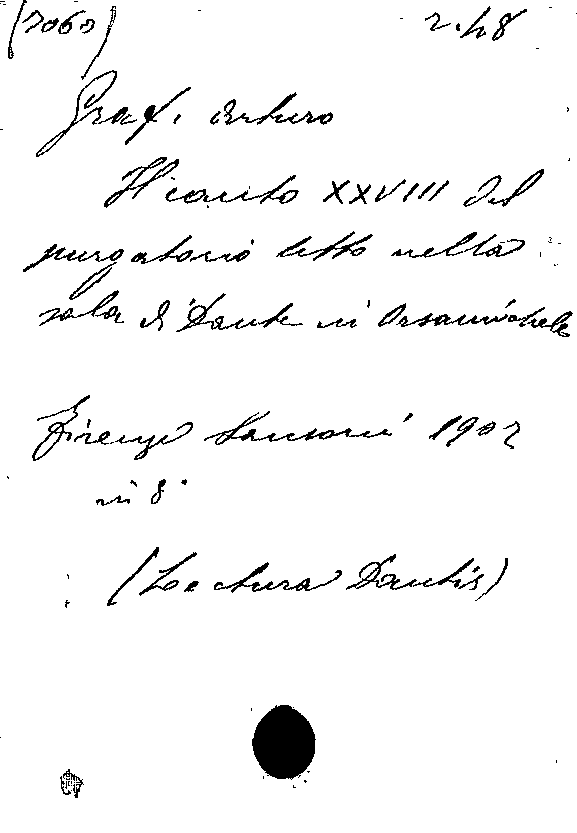 (7060) 2.4.8
Graf. Arturo
Il canto XXVIII del
purgatorio letto nella
sala di Dante in Orsanmichele
Firenze Sansoni 1902
in 8°
(Lectura Dantis)